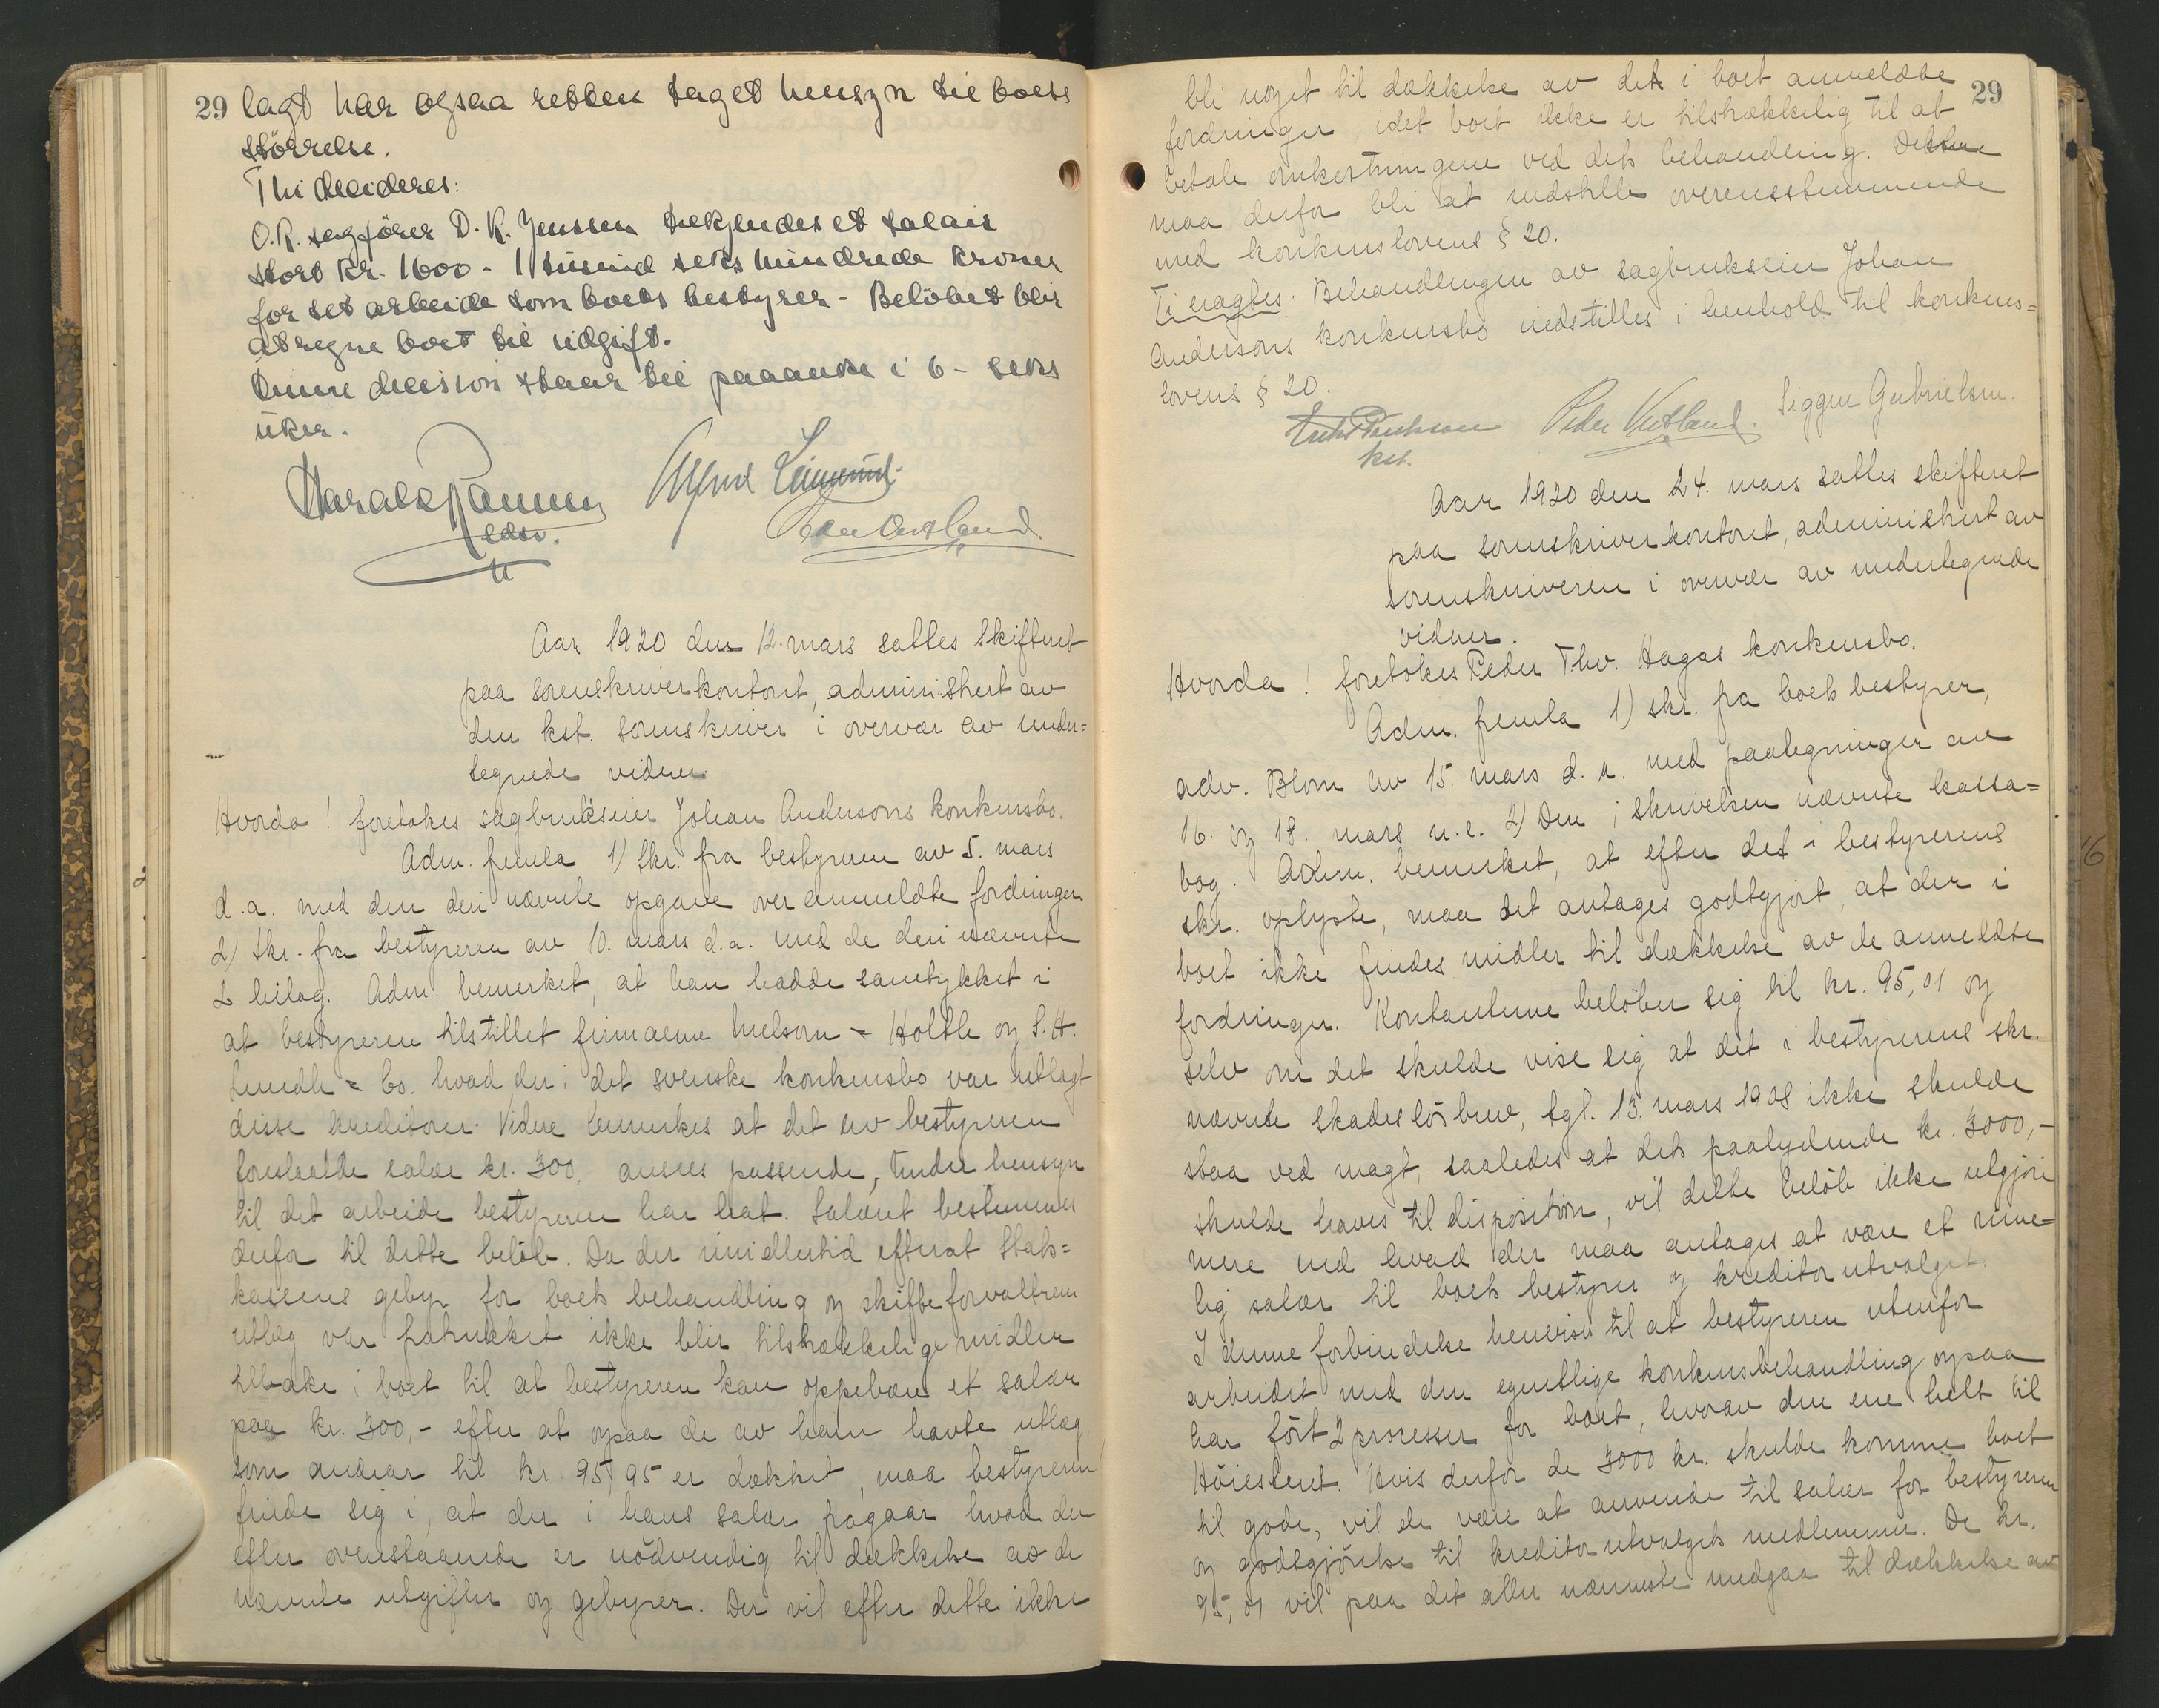 29 lagt har ogsaa retten taget hensyn til boets
störrelse.
Thi decideres:
O.R. sagförer D. K. Jenssen tilkjendes et salair
stort kr. 1600 - 1 tusind seks hundrede kroner
for sit arbeide som boets bestyrer - Belöbet blir
at regne boet til udgift.
Denne decision staar til paaanke i 6 - seks
uker.
Harald
edsv.
Alfred
Peder
Aar 1920 den 12. mars sattes skifteret
paa sorenskriverkontoret, administrert av
den kst. sorenskriver i overvær av under=
tegnede vidner
Hvorda! foretokes sagbrukseier Johan Andersons konkursbo.
Adm. fremla 1) Skr. fra bestyreren av 5. mars
d.a. med den deri nævnte opgave over anmeldte fordringer
2) Skr. fra bestyreren av 10. mars d.a. med de deri nævnte
2 bilag. Adm. bemerket, at han hadde samtykket i
at bestyreren tilstillet firmaerne Nielson & Holtle og S. H.
Lundh & Co. hvad der i det svenske konkursbo var utlagt
disse kreditorer. Videre bemerkes at det av bestyreren
foreslaatte salær kr. 300, ansees passende, under hensyn
til det arbeide bestyreren har hat. Salæret bestemmes
derfor til dette beløb. Da der imidlertid efterat Stats=
kassens gebyr for boets behandling og skifteforvalteren
utlæg var fratrukket ikke blir tilstrækkelige midler
tilbake i boet til at bestyreren kan oppebære et salær
paa kr. 300,- efter at ogsaa de av ham havte utlæg
som andrar til kr. 95,95 er dækket, maa bestyreren
finde sig i, at der i hans salær fragaar hvad der
efter ovenstaaende er nödvendig til dækkelse av de
nævnte utgifter og gebyrer. Der vil efter dette ikke
29
bli noget til dækkelse av det i boet anmeldte
fordringer, idet boet ikke er tilstrækkelig til at
betale omkostningene ved dets behandling. Dette
maa derfor bli at indstille overensstemmende
med konkurslovens § 20.
Ti eragtes: Behandlingen av sagbrukseier Johan
Andersons konkursbo indstilles i henhold til konkurs=
lovens § 20.
kst.
Peder
Sigger Gabrielsen.
Aar 1920 den 24. mars sattes skifteret
paa sorenskriverkontoret, administrert av
sorenskriveren i overvær av undertegnede
vidner.
Hvorda! foretokes Peder Thv. Hagas konkursbo.
Adm. fremla 1) skr. fra boets bestyrer,
adv. Blom av 15. mars d. a. med paategninger av
16. og 18. mars n.e. 2) Den i skrivelsen nævnte kassa=
bog. Adm. bemerket, at efter det i bestyrerens
skr. oplyste, maa det antages godtgjort, at der i
boet ikke findes midler til dækkelse av de anmeldte
fordringer. Kontanterne beløber sig til kr. 95,01 og
selv om det skulde vise sig at det i bestyrerens skr.
nævnte skadeslösbrev, tgl. 13. mars 1908 ikke skulde
staa ved magt, saaledes at dets paalydende kr. 3000,-
skulde haves til disposition, vil dette belöb ikke utgjöre
mere end hvad der maa antages at være et rime=
lig salær til boets bestyrer og kreditorutvalget.
I denne forbindelse henvises til at bestyreren utenfor
arbeidet med den egentlige konkursbehandling ogsaa
har fört 2 processer for boet, hvorav den ene helt til
Höiesteret. Hvis derfor de 3000 kr. skulde komme boet
til gode, vil de være at anvende til salær for bestyreren
og godtgjörelse til kreditorutvalgets medlemmer. De kr.
95,01 vil paa det aller nærmeste medgaa til dækkelse av
16